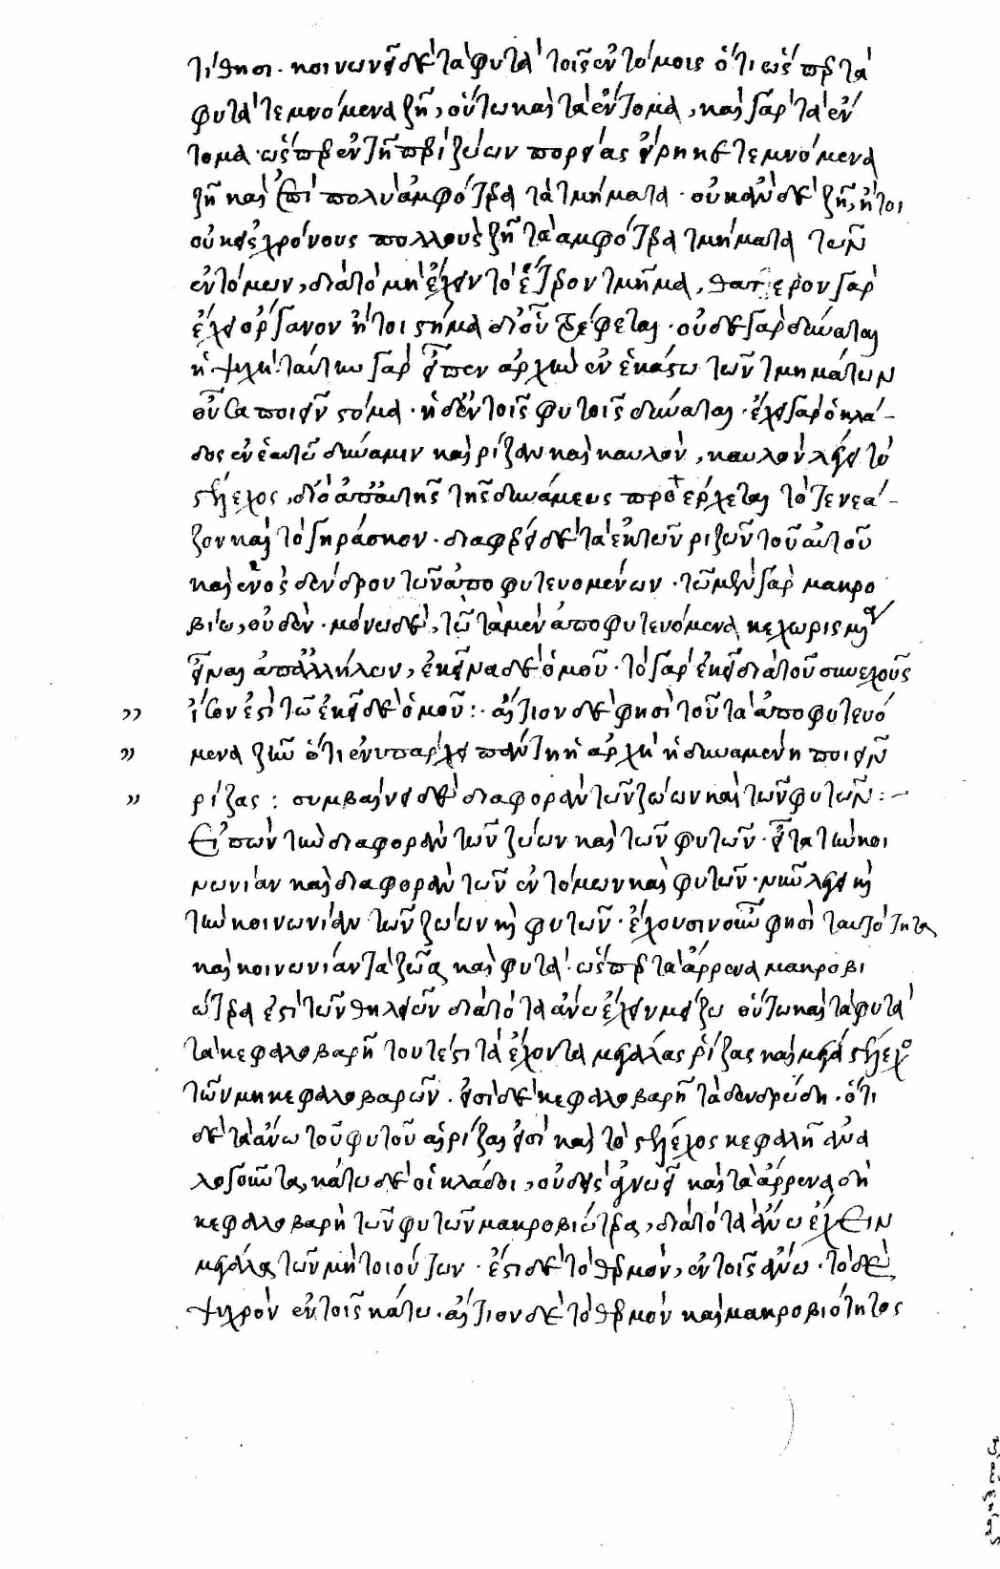 τίθησι· κοινωνεῖ δὲ τὰ φυτὰ τοῖς ἐντόμοις ὅτι ὥσπερ τὰ
φυτὰ τεμνόμενα ζῆ, οὕτω καὶ τὰ ἔντομα, καὶ γὰρ τὰ ἔν
τομα ὥσπερ ἐν τῆ περὶ ζώων πορείας εἴρηκε τεμνόμενα
ζῆ καὶ ἐπὶ πολὺ ἀμφότερα τὰ τμήματα· οὐκ ἂν δὲ ζῆ, ἤτοι
οὐκ εἰς χρόνους πολλοὺς ζῆ τὰ ἀμφότερα τμήματα τῶν
ἐντόμων, διὰ τὸ μὴ ἔχειν τὸ ἕτερον τμῆμα, θάτερον γὰρ
ἔχει ὄργανον ἤτοι στόμα δι' οὗ τρέφεται· οὐδὲ γὰρ δύναται
ἡ ψυχὴ ταύτην γὰρ εἶπεν ἀρχὴν ἐν ἑκάστω τῶν τμημάτων
οὖσα ποιεῖν στόμα· ἡ δ' ἐν τοῖς φυτοῖς δύναται· ἔχει γὰρ ὁ κλά-
δος ἐν ἑαυτῶ δύναμιν καὶ ρίζαν καὶ καυλὸν, καυλὸν λέγει τὸ
στέλεχος, διὸ ἀπ' αὐτῆς τῆς δυνάμεως προέρχεται τὸ νεά-
ζον καὶ τὸ γηράσκον· διαφέρει δὲ τὰ ἐκ τῶν ριζῶν τοῦ αὐτοῦ
καὶ ἑνὸς δένδρου τῶν ἀποφυτευομένων· τῶ μὲν γὰρ μακρο
βίω, οὐδὲν· μόνω δὲ, τῶ τὰ μὲν ἀποφυτευόμενα κεχωρισμένα
εἶναι ἀπ' ἀλλήλων, ἐκεῖνα δὲ ὁμοῦ· τὸ γὰρ ἐκεῖ διὰ τοῦ συνεχοῦς
ἴσον ἐστὶ τῶ ἐκεῖ δὲ ὁμοῦ:· αἴτιον δὲ φησὶ τοῦ τὰ ἀποφυτευό
μενα ζῆν ὅτι ἐνυπάρχει πάντη ἡ ἀρχὴ ἡ δυναμένη ποιεῖν
ρίζας: συμβαίνει δὲ διαφορὰν τῶν ζώων καὶ τῶν φυτῶν:–
Εἰπὼν τὴν διαφορὰν τῶν ζώων καὶ τῶν φυτῶν· εἶτα τὴν κοι
νωνίαν καὶ διαφορὰν τῶν ἐντόμων καὶ φυτῶν· νῦν λέγει καὶ
τὴν κοινωνίαν τῶν ζώων καὶ φυτῶν· ἔχουσιν οὖν φησὶ ταυτότητα
καὶ κοινωνίαν τὰ ζῶα καὶ φυτὰ· ὥσπερ τὰ ἄρρενα μακροβι
ώτερα ἐστὶ τῶν θηλειῶν διὰ τὸ τὰ ἄνω ἔχειν μείζω οὕτω καὶ τὰ φυτὰ
τὰ κεφαλοβαρῆ τουτέστι τὰ ἔχοντα μεγάλας ρίζας καὶ μέγα στέλεχος
τῶν μὴ κεφαλοβαρῶν· εἰσὶ δὲ κεφαλοβαρῆ τὰ δενδρώδη· ὅτι
δὲ τὰ ἄνω τοῦ φυτοῦ αἱ ρίζαι εἰσὶ καὶ τὸ στέλεχος κεφαλῆ ἀνα
λογοῦντα, κάτω δὲ οἱ κλάδοι, οὐδεὶς ἀγνοεῖ καὶ τὰ ἄρρενα δὴ
κεφαλοβαρῆ τῶν φυτῶν μακροβιώτερα, διὰ τὸ τὰ ἄνω ἔχειν
μεγάλα τῶν μὴ τοιούτων· ἔστι δὲ τὸ θερμὸν, ἐν τοῖς ἄνω· τὸ δὲ
ψυχρὸν ἐν τοῖς κάτω· αἴτιον δὲ τὸ θερμὸν καὶ μακροβιότητος